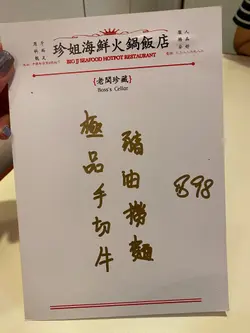 珍姐海鮮火鍋飯店
BIG JJ SEAFOOD HOTPOT RESTAURANT
{老闆珍藏}
Boss's Cellar
豬油撈麵
極品手切牛
$98